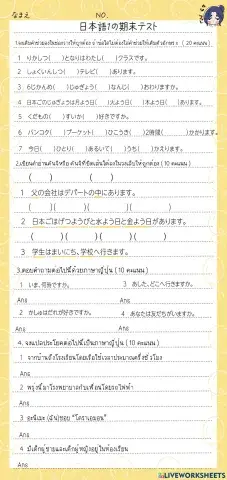 なまえ NO.
日本語1の期末テスト
1.จงเติมคำช่วยลงในช่องว่างให้ถูกต้อง ถ้าช่องใดไม่ต้องใส่คำช่วยให้เติมตัวอักษร × ( 20 คะแนน )
1 りかしつ( )となりはわたし( )クラスです。
2 しょくいんしつ( )テレビ( )あります。
3 6じかんめ( )じゅぎょう( )なんじ( )おわりますか。
4 日本ごのじゅぎょうは月よう日( )火よう日( )木よう日( )あります。
5 くだもの( )すいか( )好きですか。
6 バンコク( )プーケット( )ひこうき( )2時間( )かかります。
7 今日( )ひとり( )あるいて( )うち( )かえります。
( 10 คะแนน )
( ) ( )
1 父の会社はデパートの中にあります。
( )( )( ) ( )
2 日本ごはげつようびと水よう日と金よう日があります。
( )( )( ) ( )( )
3 学生はまいにち、学校へ行きます。
3.ตอบคำถามต่อไปนี้ด้วยภาษาญี่ปุ่น ( 10 คะแนน )
1 いま、何時ですか。 3 あした、どこへ行きますか。
Ans Ans
2 かしゅはだれが好きですか。 4 あなたは友だちがいますか。
Ans Ans
4. จงแปลประโยคต่อไปนี้เป็นภาษาญี่ปุ่น ( 10 คะแนน )
1 จากบ้านถึงโรงเรียนโดยเรือใช้เวลาประมาณครึ่งชั่วโมง
Ans
2 พรุ่งนี้มาโรงพยาบาลกับเพื่อนโดยรถไฟฟ้า
Ans
3 อะนิเมะ (ฉัน)ชอบ "โดราเอมอน"
Ans
4 มีเด็กผู้ชายและเด็กผู้หญิงอยู่ในห้องเรียน
Ans
LIVEWORKSHEETS